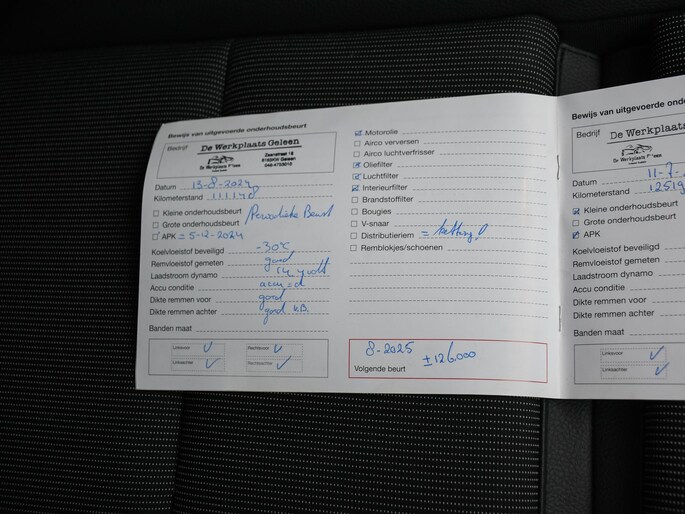 Bewijs van uitgevoerde onderhoudsbeurt
Bedrijf De Werkplaats Geleen
De Werkplaats
Datum 13-8-2024
Kilometerstand 111.140
Kleine onderhoudsbeurt
Grote onderhoudsbeurt
Periodieke Beurt
APK = 5-12-2024
Koelvloeistof beveiligd -30°C
Remvloeistof gemeten goed
Laadstroom dynamo
Accu conditie
Dikte remmen voor goed
Dikte remmen achter goed
Banden maat
Linksvoor
Rechtsvoor
Linksachter
Rechtsachter
Motorolie
Airco verversen
Airco luchtverfrisser
Oliefilter
Luchtfilter
Interieurfilter
Brandstoffilter
Bougies
V-snaar
Distributieriem = ketting!
Remblokjes/schoenen
8-2025 ±126.000
Volgende beurt
Bewijs van uitgevoerde onderho
Bedrijf De Werkplaats
De Werkplaats
Datum 11-7-
Kilometerstand 1251
Kleine onderhoudsbeurt
Grote onderhoudsbeurt
APK
Koelvloeistof beveiligd
Remvloeistof gemeten
Laadstroom dynamo
Accu conditie
Dikte remmen voor
Dikte remmen achter
Banden maat
Linksvoor
Linksachter